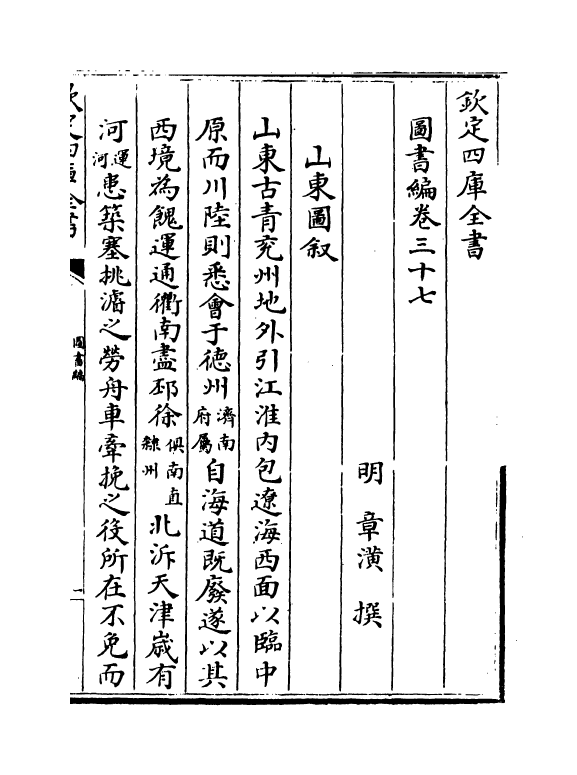 欽定四庫全書
圖書編卷三十七
明 章潢 撰
山東圖叙
山東古青兖州地外引江淮内包遼海西面以臨中
原而川陸則悉會于德州濟南府屬自海道既廢遂以其
西境為餽運通衢南盡邳徐俱南直隸州北泝天津嵗有
河運河患築塞挑濬之勞舟車牽挽之役所在不免而
欽定四庫全書
圖書編
一